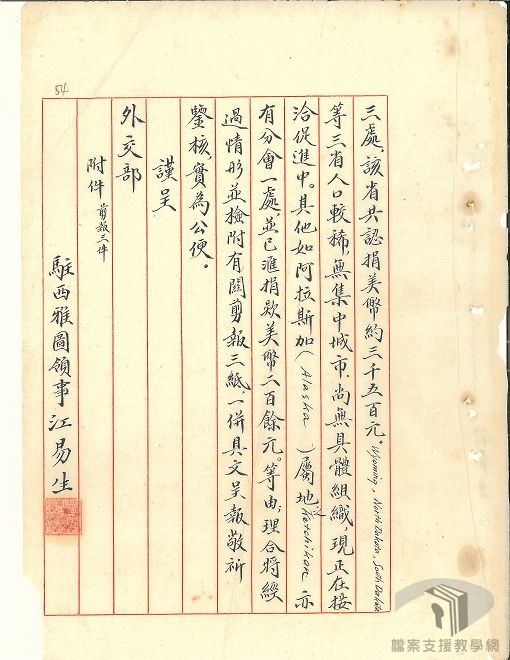 54
三處，該省共認捐美幣約三千五百元。Wyoming, North Dakota, South Dakota
等三省人口較稀，無集中城市，尚無具體組織，現正在接
洽促進中。其他如阿拉斯加（Alaska）屬地Ketchikan亦
有分會一處，並已滙捐欵美幣二百餘元。等由；理合將經
過情形並檢附有關剪報三紙，一併具文呈報敬祈
鑒核，實為公便。
謹呈
外交部
附件 剪報三件
駐西雅圖領事江易生
檔案支援教學網